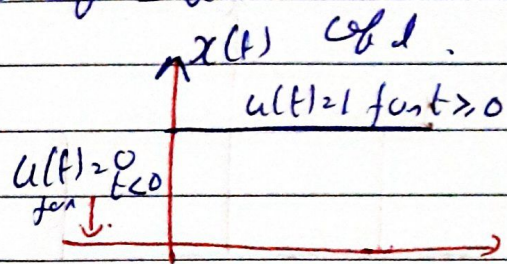 x(t) of 1.
u(t)=1 for t≥0
u(t)=0
for t<0